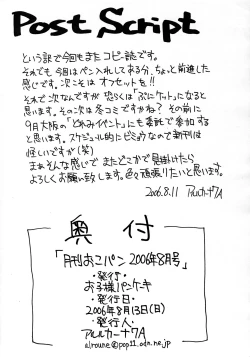 Post Script
という訳で今回もまたコピー誌です。
それでも今回はペン入れしてある分、ちょっと前進した
感じです。次こそはオフセットを!!
それで次なんですが恐らくは「ぷにケット」になると
思います。その次は冬コミですかね? その前に
9月大阪の「とれみイベント」にも委託で参加する
と思います。スケジュール的にビミョウなので新刊は
怪しいですが(笑)
まぁそんな感じで またどこかで見掛けたら
よろしくお願い致します。色々頑張りたいと思います。
2006.8.11 アルカーナ7A
奥付
「月刊おこパン 2006年8月号」
・発行・
お子様パンケーキ
・発行日・
2006年8月13日(日)
・発行人・
アルルカーナ7A
alroune@pop11.odn.ne.jp